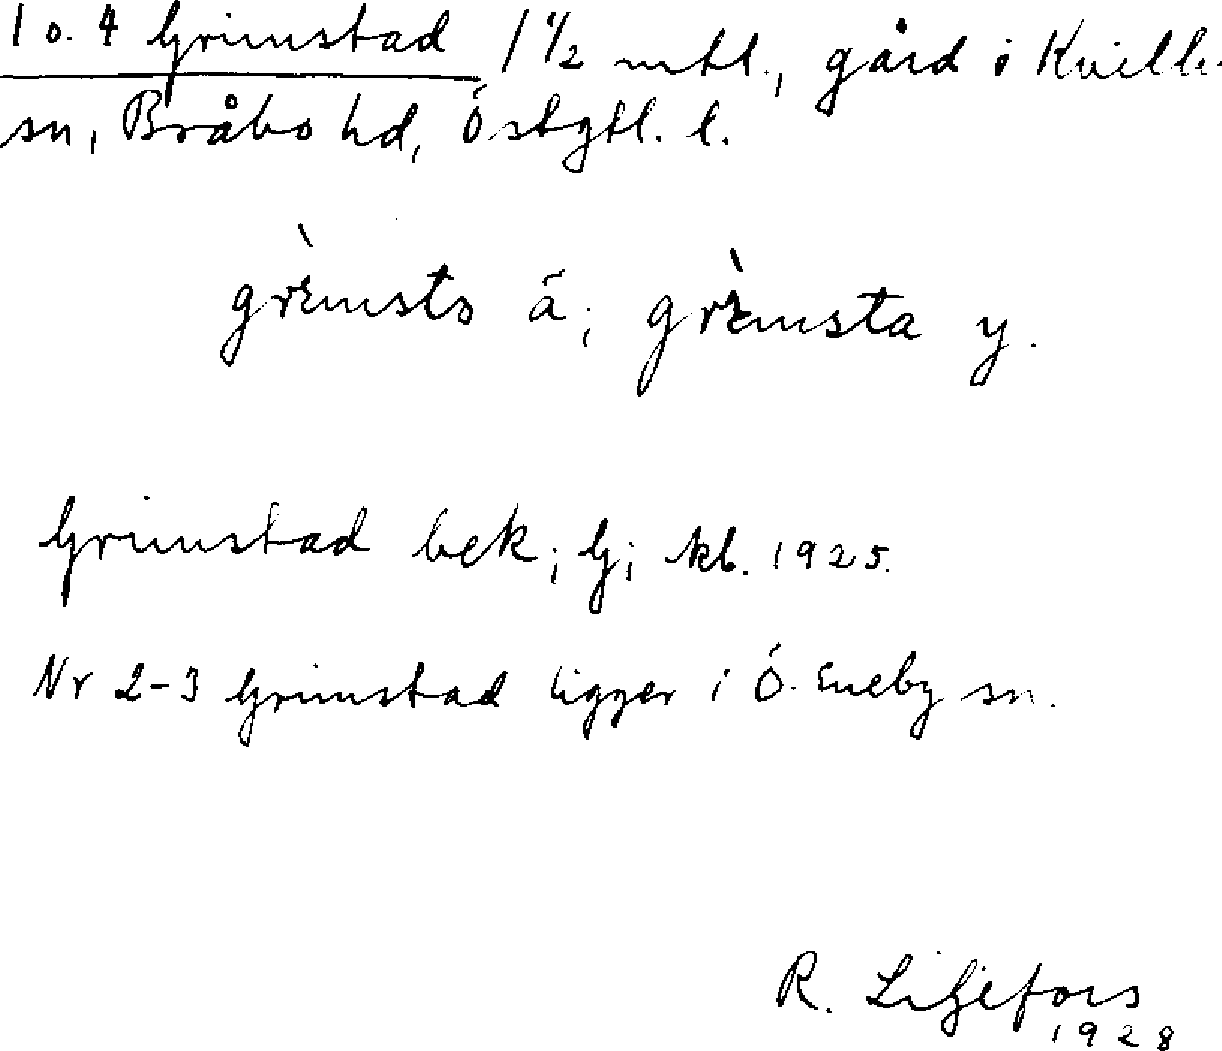 1 o. 4 Grimstad 1 1/2 mtl., gård i Kvill.
sn, Bråbo hd, Östgtl. l.
grimsto ä; grimsta y.
Grimstad bek; Gj; kb. 1925.
Nr 2-3 Grimstad ligger i Ö. Eneby sn.
R. Liljefors
1928